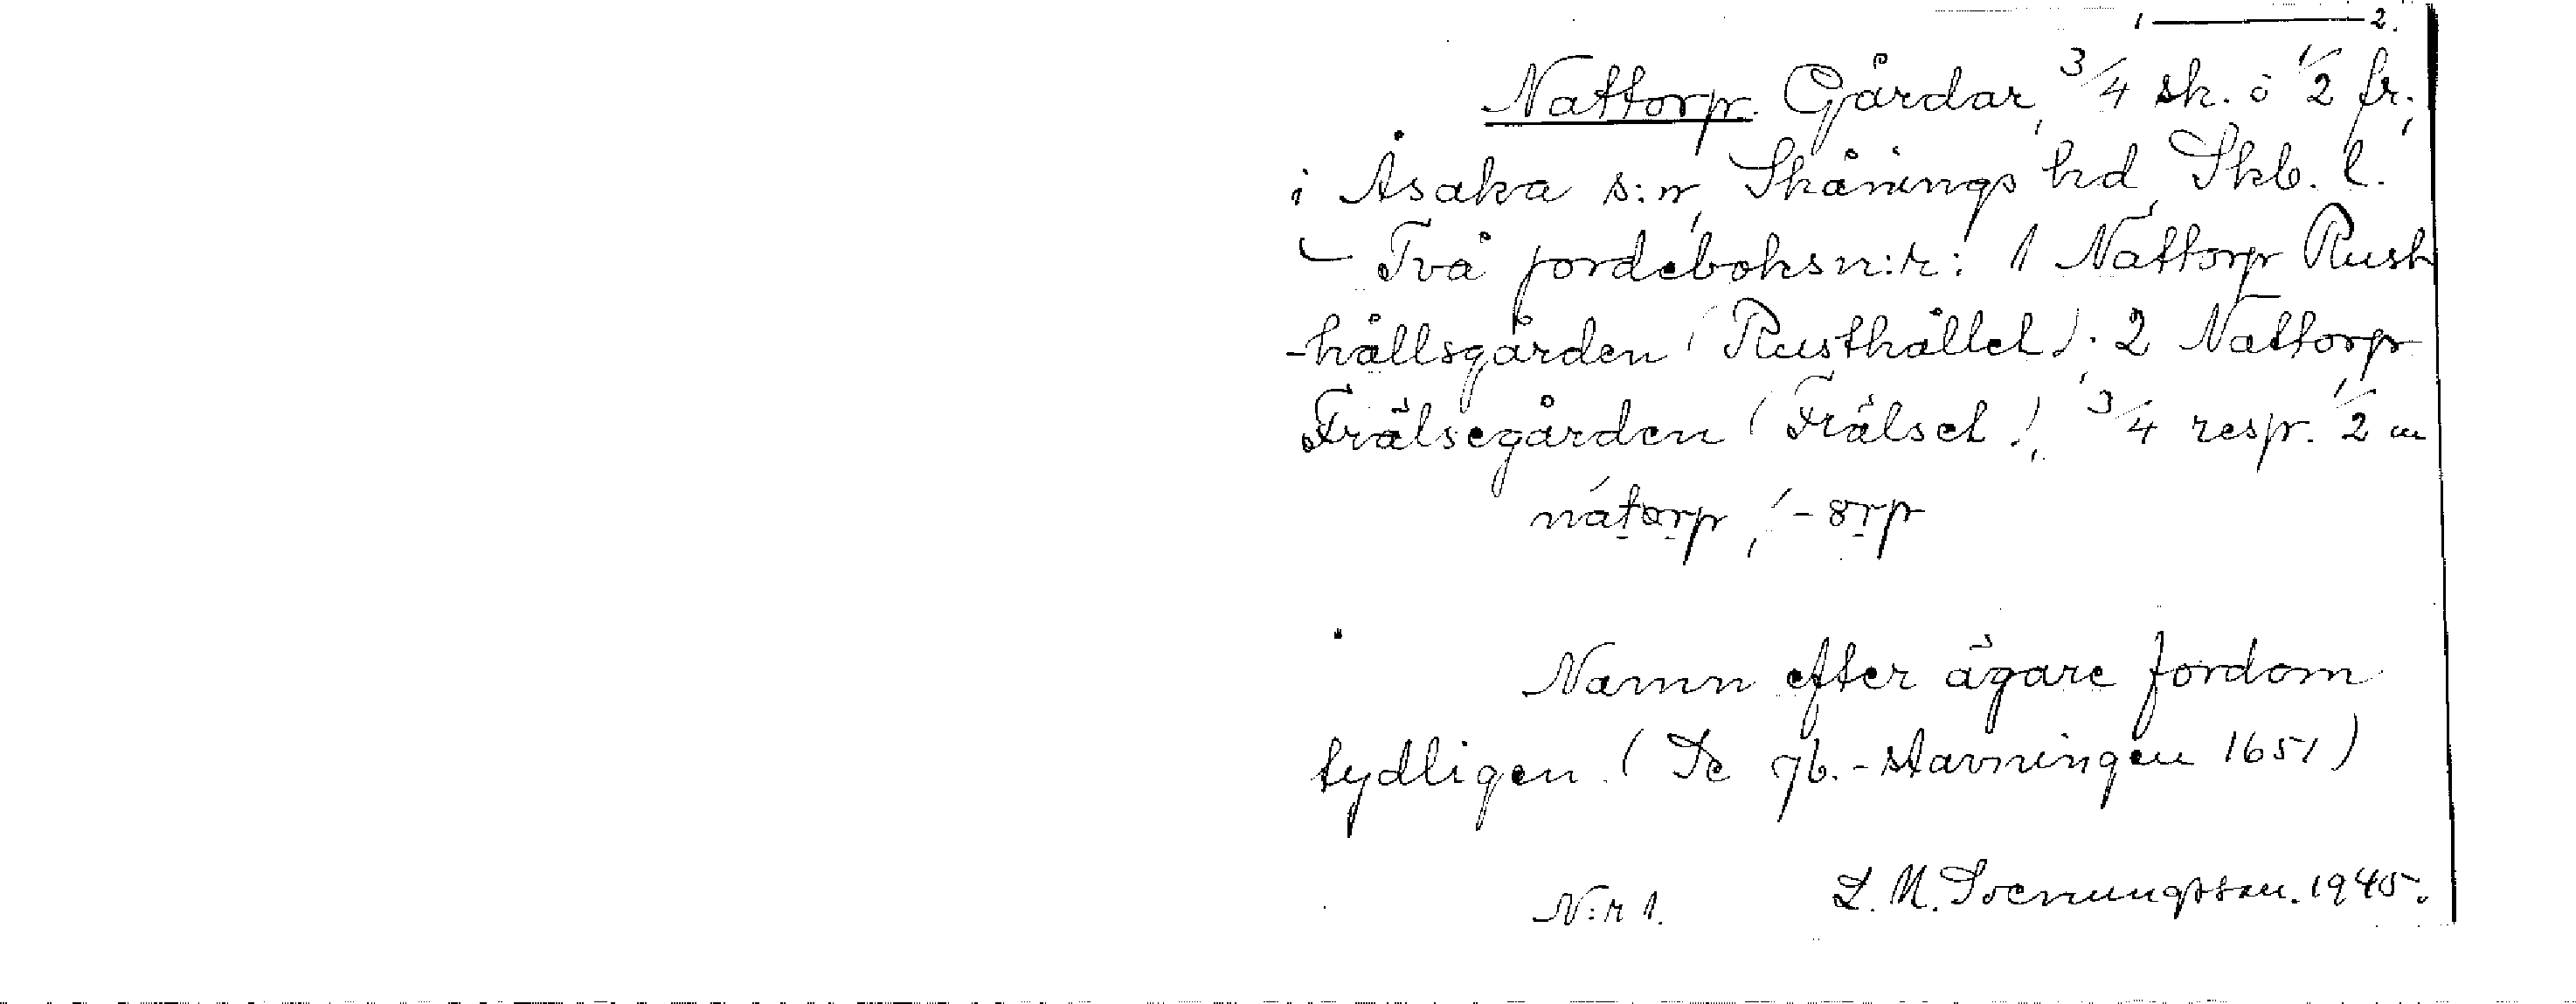 1 — 2.
Nattorp. Gårdar, 3/4 sk. o 1/2 fr.,
i Åsaka s:n, Skånings hd, Skb. l.
– Två jordeboksn:r: 1 Nattorp Rust
-hållsgården (Rusthållet). 2 Nattorp
Frälsegården (Frälset), 3/4 resp. 1/2 m
nátorp, -örp
Namn efter ägare fordom
tydligen. (Se jb.-stavningen 1651)
N:r 1. L. M. Svenungsson. 1945.